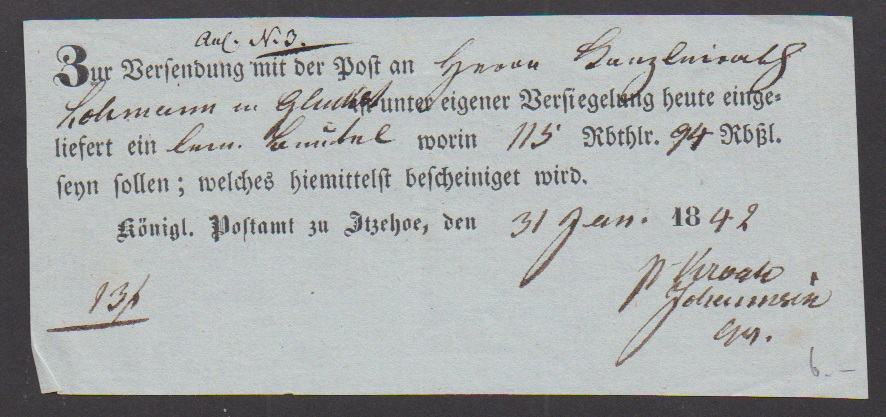 Anl. N. 3.
Zur Versendung mit der Post an Herrn Kanzleirath
Lohmann in Glückst ist unter eigener Versiegelung heute einge-
liefert ein lein. Beutel worin 115 Rbthlr. 94 Rbßl.
seyn sollen; welches hiemittelst bescheiniget wird.
Königl. Postamt zu Itzehoe, den 31 Jan. 1842
13
Johannsen
6.-